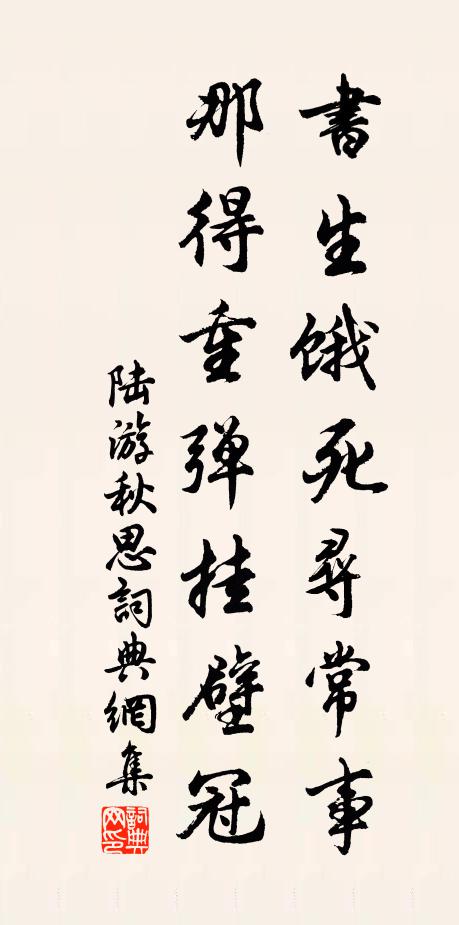 書生餓死尋常事
那得重彈挂壁冠
陆游秋思詞典網集
詞典网印